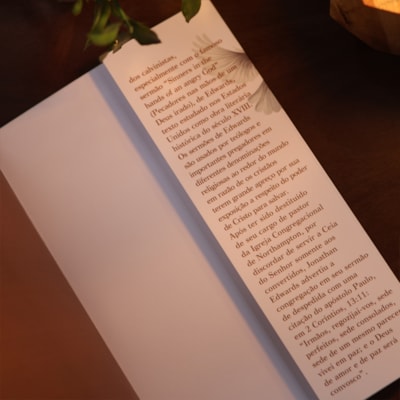 dos calvinistas,
especialmente com o famoso
sermão "Sinners in the
hands of an angry God"
(Pecadores nas mãos de um
Deus irado), de Edwards,
texto estudado nos Estados
Unidos como obra literária
histórica do século XVIII.
Os sermões de Edwards
são usados por teólogos e
importantes pregadores em
diferentes denominações
religiosas ao redor do mundo
em razão de os cristãos
terem grande apreço por sua
exposição a respeito do poder
de Cristo para salvar.
Após ter sido destituído
de seu cargo de pastor
da Igreja Congregacional
de Northampton, por
discordar de servir a Ceia
do Senhor somente aos
convertidos, Jonathan
Edwards advertiu a
congregação em seu sermão
de despedida com uma
citação do apóstolo Paulo,
em 2 Coríntios, 13:11:
"Irmãos, regozijai-vos, sede
perfeitos, sede consolados,
sede de um mesmo parecer,
vivei em paz; e o Deus
de amor e de paz será
convosco".